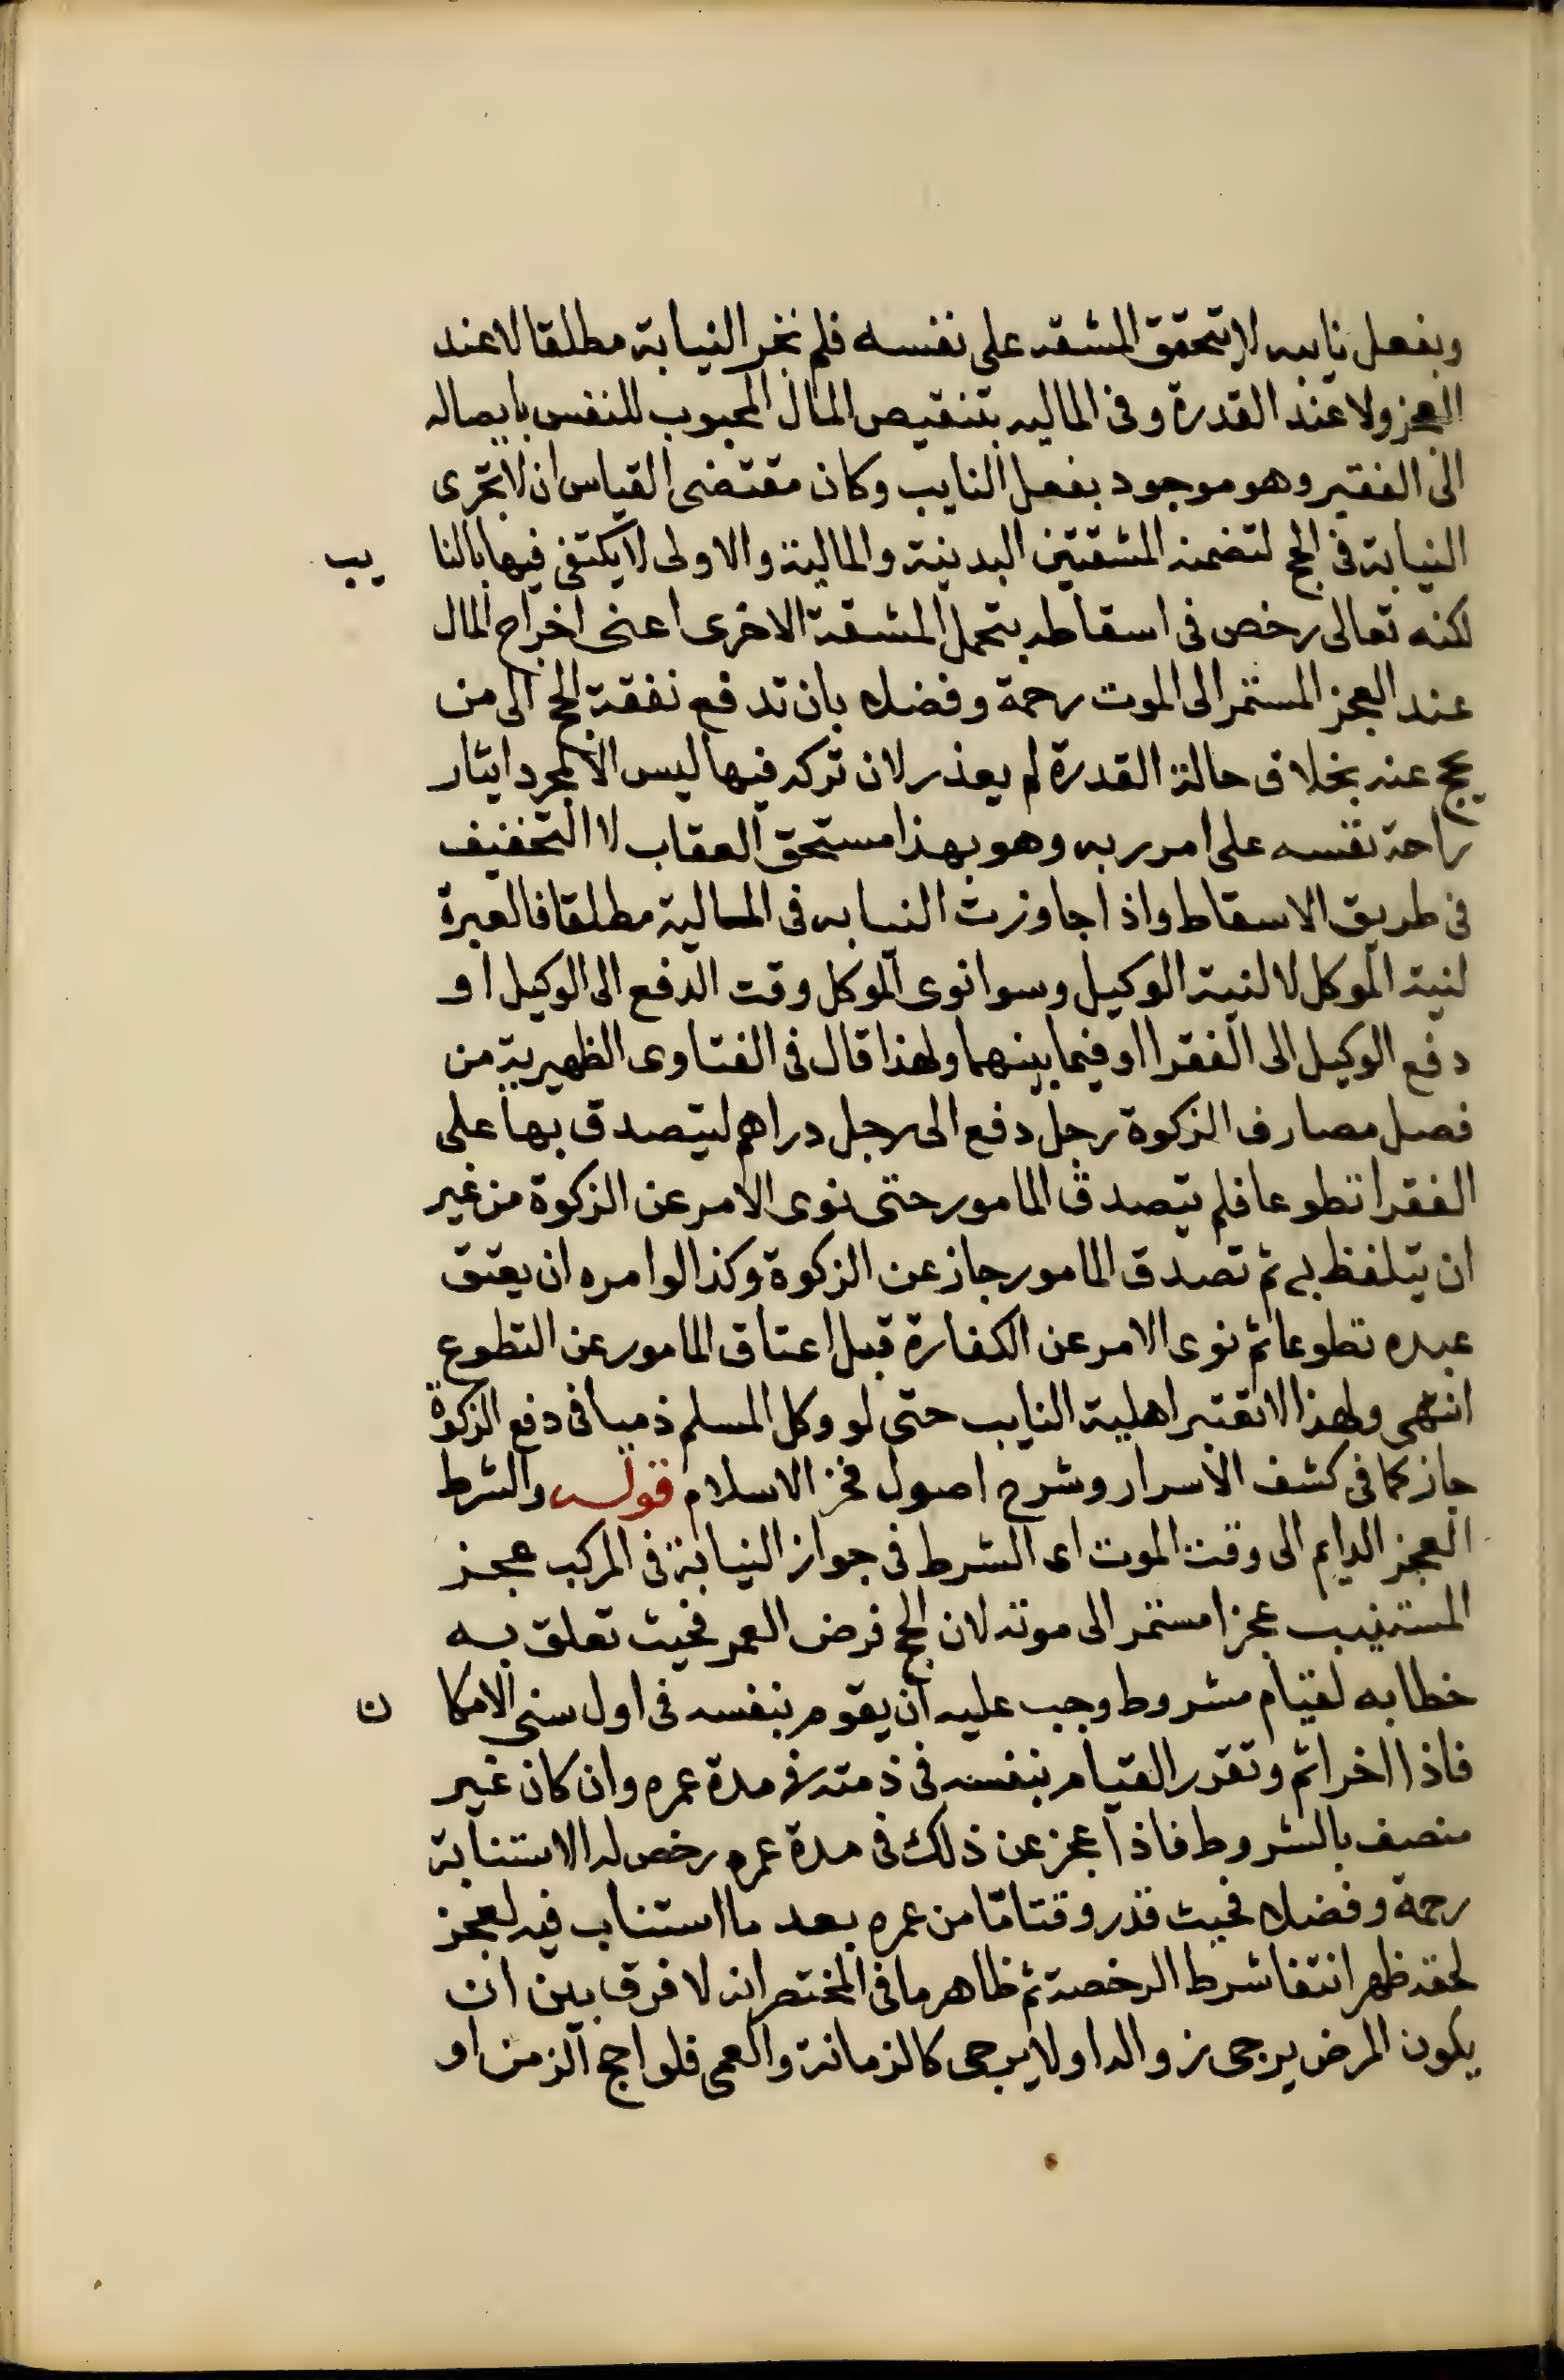 وبفعل نايبه لا تتحقق المشقه على نفسه فلم تجز النيابة مطلقا لا عند
العجز ولا عند القدرة وفى الماليه بتنقيص المال المحبوب للنفس بايصاله
الى الفقير وهو موجود بفعل النايب وكان مقتضى القياس ان لا تجرى
النيابة فى الحج لتضمنه المشقتين البدنية والمالية والاولى لا يكتفى فيها بالنا يب
لكنه تعالى رخص فى اسقاطه بتحمل المشقة الاخرى اعنى اخراج المال
عند العجز المستمر الى الموت رحمة وفضلا بان تدفع نفقة الحج الى من
يحج عنه بخلاف حالة القدرة لم يعذر لان تركه فيها ليس الا لمجرد ايثار
راحة نفسه على امر ربه وهو بهذا مستحق العقاب لا التخفيف
فى طريق الاسقاط واذا جاوزت النيابه فى المالية مطلقا فالعبرة
لنية الموكل لا لنية الوكيل وسوا نوى الموكل وقت الدفع الى الوكيل او
دفع الوكيل الى الفقرا او فيما بينهما ولهذا قال فى الفتاوى الظهيرية من
فصل مصارف الزكوة رجل دفع الى رجل دراهم ليتصدق بها على
الفقرا تطوعا فلم يتصدق المامور حتى نوى الامر عن الزكوة من غير
ان يتلفظ به ثم تصدق المامور جاز عن الزكوة وكذا لو امره ان يعتق
عبده تطوعا ثم نوى الامر عن الكفارة قبل اعتاق المامور عن التطوع
انتهى ولهذا لا تعتبر اهلية النايب حتى لو وكل المسلم ذميا فى دفع الزكوة
جاز كما فى كشف الاسرار وشرح اصول فخر الاسلام قوله والشرط
العجز الدايم الى وقت الموت اى الشرط فى جواز النيابة فى المركب عجز
المستنيب عجزا مستمر الى موته لان الحج فرض العمر فحيث تعلق به
خطابه لقيام مشروط وجب عليه ان يقوم بنفسه فى اول سنى الامكا ن
فاذا اخر اثم وتقرر القيام بنفسه فى ذمته فى مدة عمره وان كان غير
متصف بالشروط فاذا عجز عن ذلك فى مدة عمره رخص له الاستنابة
رحمة وفضلا فحيث قدر وقتا ما من عمره بعد ما استناب فيه لعجز
لحقه ظهر انتفا شرط الرخصة ثم ظاهر ما فى المختصر انه لا فرق بين ان
يكون المرض يرجى زواله او لا يرجى كالزمانة والعمى فلو احج الزمن او